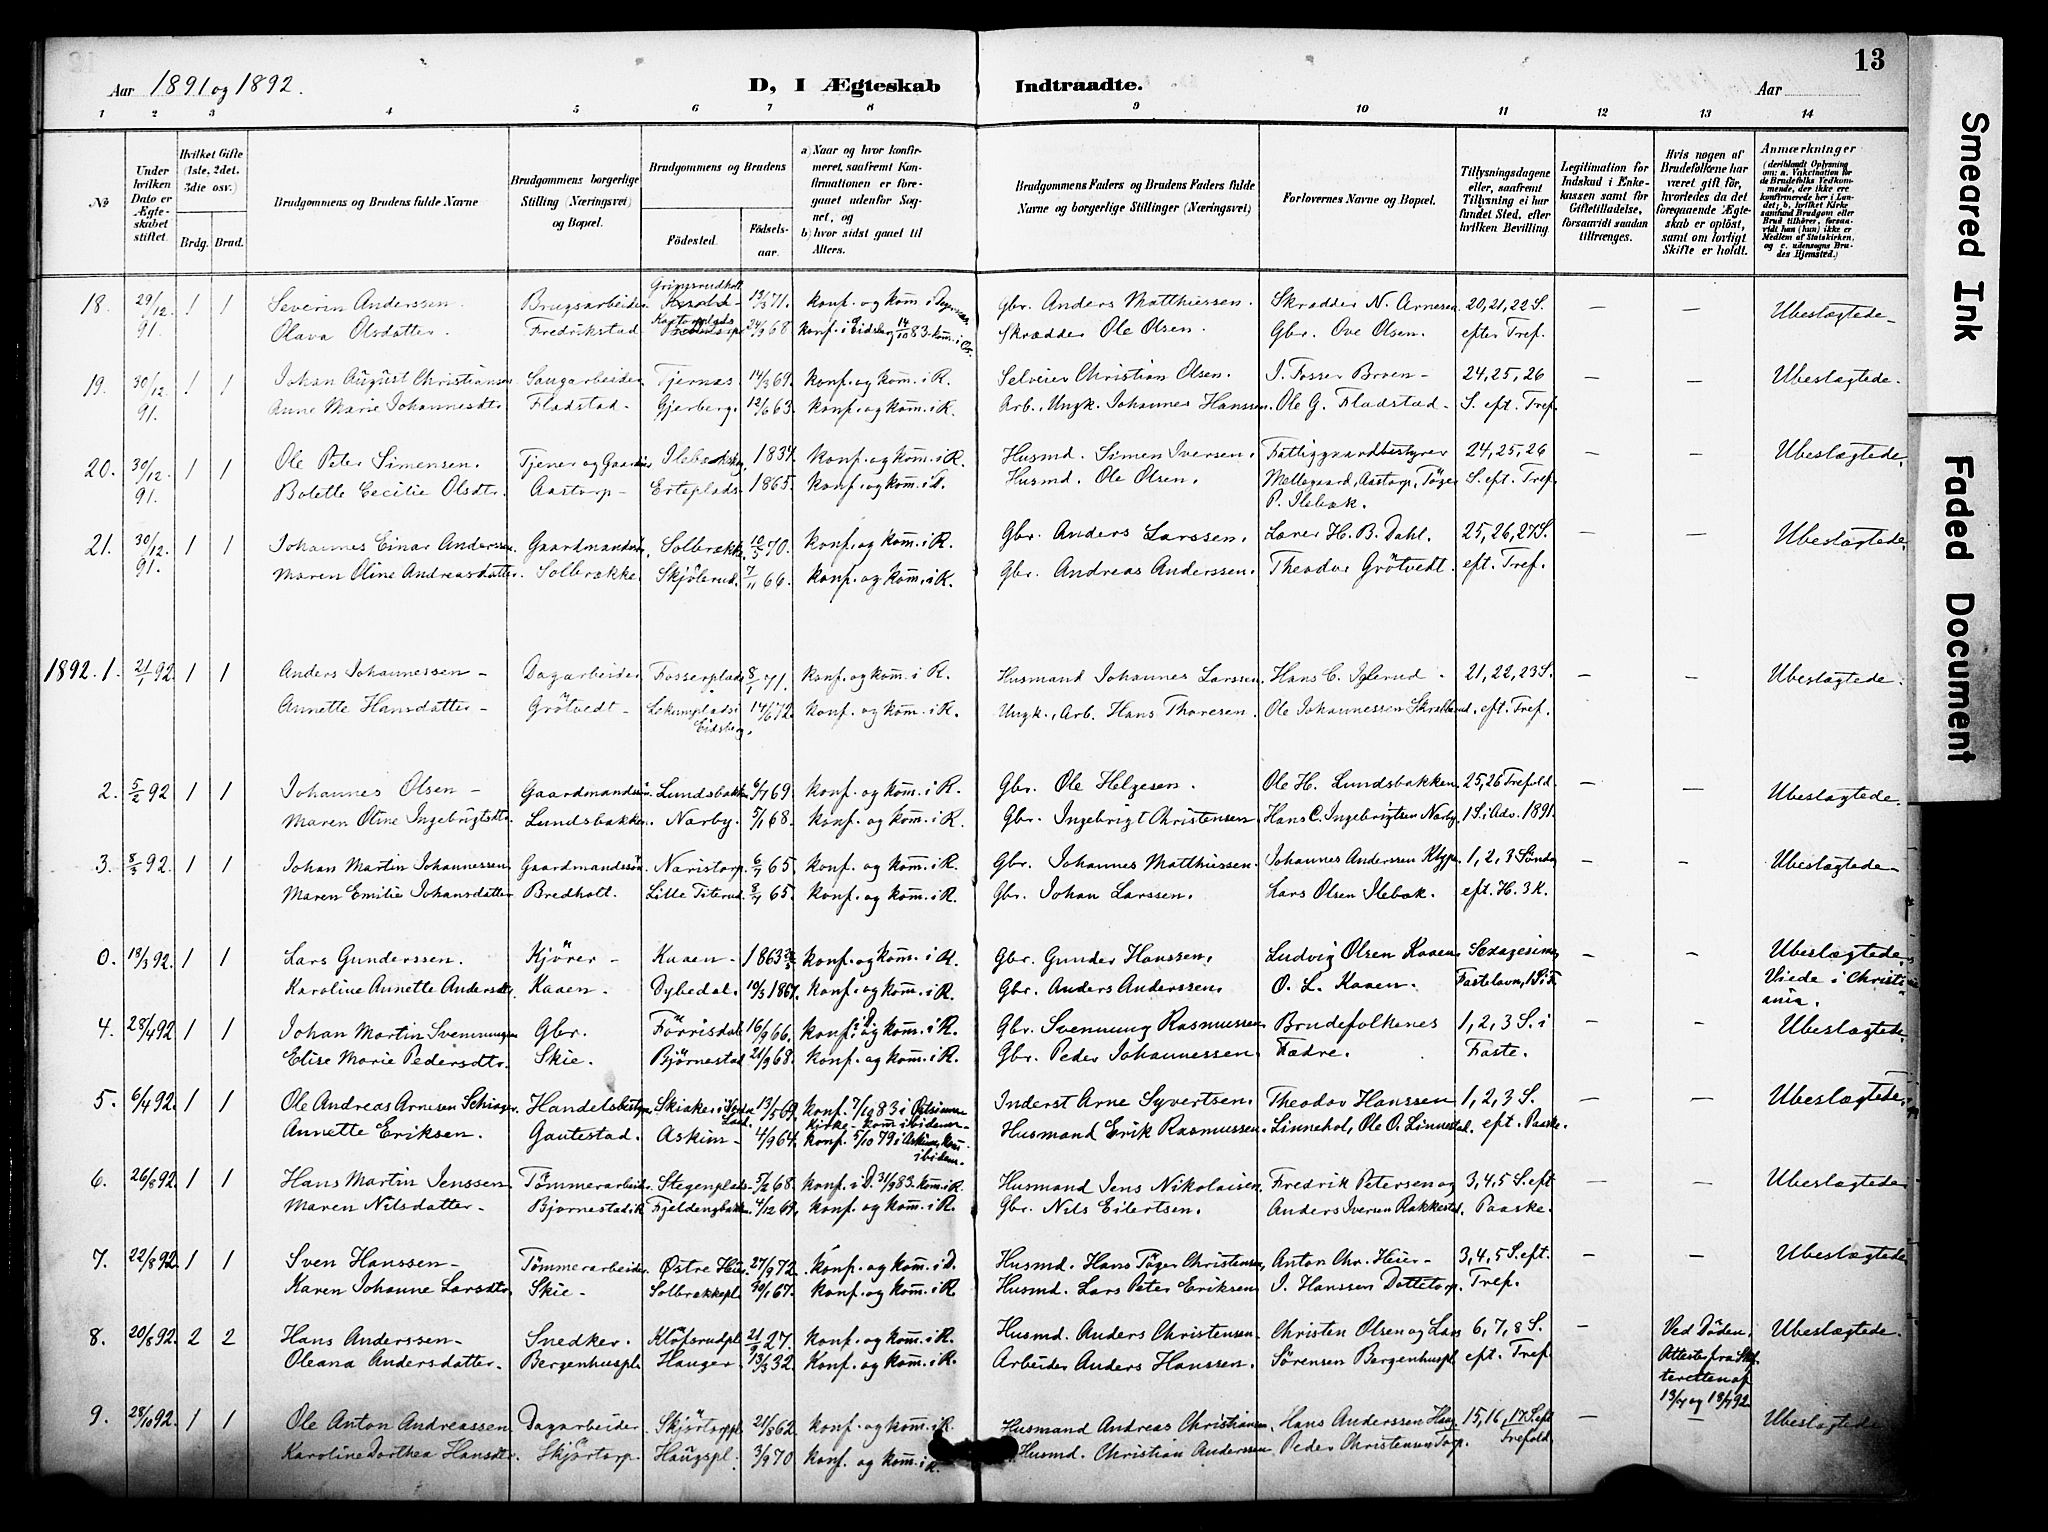 Aar 1891 og 1892.
D, I Ægteskab Indtraadte.
Aar
13
1 2 3 4 5 6 7 8 9 10 11 12 13 14
№
Under hvilken Dato er Ægteskabet stiftet.
Hvilket Gifte (1ste, 2det, 3die osv.)
Brdg. Brud.
Brudgommens og Brudens fulde Navne
Brudgommens borgerlige Stilling (Næringsvei) og Bopæl.
Brudgommens og Brudens
Fødested. Fødselsaar.
a) Naar og hvor konfirmeret, saafremt Konfirmationen er foregaaet udenfor Sognet, og
b) hvor sidst gaaet til Alters.
Brudgommens Faders og Brudens Faders fulde Navne og borgerlige Stillinger (Næringsvei)
Forlovernes Navne og Bopæl.
Tillysningsdagene eller, saafremt Tillysning ei har fundet Sted, efter hvilken Bevilling.
Legitimation for Indskud i Enkekassen samt for Giftetilladelse, forsaavidt saadan tiltrænges.
Hvis nogen af Brudefolkene har været gift før, hvorledes da det foregaaende Ægteskab er opløst, samt om lovligt Skifte er holdt.
Anmærkninger (deriblandt Oplysning om: a. Vakcination for de Brudefolks Vedkommende, der ikke ere konfirmerede her i Landet; b. hvilket Kirkesamfund Brudgom eller Brud tilhører, forsaavidt han (hun) ikke er Medlem af Statskirken, og c. udensogns Brudes Hjemsted.)
18. 29/12 91. 1 1 Severin Anderssen. Brugsarbeider 13/3 71. konf. og kom̅. i Gbr. Anders Matthiessen. Skrædder N. Arnesen 20, 21, 22 S. — — Ubeslægtede
Olava Olsdatter. Fredrikstad 24/9 68 konf. i Eidsberg 14/10 83. kom̅. i Skrædder Ole Olsen. Gbr. Ove Olsen. efter Tref.
19. 30/12 91. 1 1 Johan August Christiansen Saugarbeider Tjernæs 14/3 69. konf. og kom̅. i R. Selveier Christian Olsen. I. Fosser Broen 24, 25, 26 — — Ubeslægtede.
Anne Marie Johannesdt. Fladstad Gjerberg. 12/6 63. konf. og kom̅. i R. Arb., Ungk. Johannes Hanssen. Ole G. Fladstad S. eft. Tref.
20. 30/12 91. 1 1 Ole Peter Simensen. Tjener og Ilebæk 1834. konf. og kom̅. i R. Husmd. Simen Iversen. Fattiggaardbestyrer 24, 25, 26 — — Ubeslægtede.
Bolette Cecilie Olsdt. Aastorp Erteplads 1865. konf. og kom̅. i D. Husmd. Ole Olsen. Mellegaard, Aastorp, Töger S. eft. Tref.
P. Ilebæk.
21. 30/12 91. 1 1 Johannes Einar Anderssen Gaardmandssön, Solbrække 10/5 70. konf. og kom̅. i R. Gbr. Anders Larssen. Lærer H. B. Dahl. 25, 26, 27 S. — — Ubeslægtede.
Maren Oline Andreasdatter. Solbrække. Skjölerud. 7/11 66. konf. og kom̅. i R. Gbr. Andreas Anderssen. Theodor Grötvedt. eft. Tref.
1892. 1. 21/1 92. 1 1 Anders Johannessen Dagarbeider Fosserplads 8/1 71. konf. og kom̅. i R. Husmand Johannes Larssen. Hans C. Iglerud 21, 22, 23 S. — — Ubeslægtede.
Annette Hansdatter Grötvedt i Eidsberg. 14/6 72. konf. og kom̅. i R. Ungk., Arb. Hans Thoresen. Ole Johannessen eft. Tref.
2. 5/2 92 1 1 Johannes Olsen Gaardmandssön Lundsbakken 6/7 69 konf. og kom̅. i R. Gbr. Ole Helgesen. Ole H. Lundsbakken 25, 26 Trefold. — — Ubeslægtede.
Maren Oline Ingebrigtsdt. Lundsbakken. Narby. 5/1 68. konf. og kom̅. i R. Gbr. Ingebrigt Christensen Hans C. Ingebrigtsen Narby 1 S. i Adv. 1891.
3. 8/3 92. 1 1 Johan Martin Johannessen Gaardmandssön Naristorp. 6/7 65. konf. og kom̅. i R. Gbr. Johannes Matthiessen. Johannes Anderssen 1, 2, 3 Sönd. — — Ubeslægtede
Maren Emilie Johansdatter Bredholt. Lille Titerud. 65. konf. og kom̅. i R. Gbr. Johan Larssen. Lars Olsen Ilebæk. eft. H. 3 K.
0. 18/3 92. 1 1 Lars Gunderssen. Kjörer Kaaen 1863 konf. og kom̅. i R. Gbr. Gunder Hanssen. Ludvig Olsen Kaaen Sexagesima — — Ubeslægtede
Karoline Annette Andersdt. Kaaen. Dybedal. 19/3 1867. konf. og kom̅. i R. Gbr. Anders Anderssen. O. L. Kaaen. Fastelavn, 1 S i F. Viede i Christiania.
4. 28/4 92. 1 1 Johan Martin Svennungsen Gbr. Förrisdal 16/9 66. konf. i D. og kom̅. i R. Gbr. Svennung Rasmussen Brudefolkenes 1, 2, 3 S. i — — Ubeslægtede
Elise Marie Pedersdt. Skie. Björnestad 21/9 68. konf. og kom̅. i R. Gbr. Peder Johannessen Fædre. Faste.
5. 6/4 92. 1 1 Ole Andreas Arnesen Handelsbestyrer Skiaker i Nordre Land. 13/5 69. konf. 7/10 83 i Kirke - kom i ibidem Inderst Arne Syvertsen. Theodor Hanssen 1, 2, 3 S. — — Ubeslægtede.
Annette Eriksen. Gautestad. Askim 4/9 64. konf. 5/10 79 i Askim, kom̅. ibidem. Husmand Erik Rasmussen. Linnehol, Ole O. Linnestad. eft. Paaske.
6. 26/8 92. 1 1 Hans Martin Jenssen Tömmerarbeider Stegenplads. 5/2 68. konf. i D. 83. kom̅. i R. Husmand Jens Nikolaisen. Fredrik Petersen og 3, 4, 5 S. eft — — Ubeslægtede
Maren Nilsdatter Björnestad 4/12 69. konf. og kom̅. i R. Gbr. Nils Eilertsen. Anders Iversen Rakkestad. Paaske.
7. 22/8 92. 1 1 Sven Hanssen Tömmerarbeider Østre Heier 27/9 72. konf. og kom̅. i D. Husmd. Hans Töger Christensen. Anton Chr. Heier 3, 4, 5 S. eft. — — Ubeslægtede
Karen Johanne Larsdt. Skie Solbrækkepl. 30/1 67. konf. og kom̅. i R. Husmd. Lars Peter Eriksen. I. Hanssen Dottetorp. Tref.
8. 20/8 92. 2 2 Hans Anderssen Snedker. Klöfsrudpl. 21/9 27. konf. og kom̅. i R. Husmd. Anders Christensen. Christen Olsen og Lars 6, 7, 8 S. — Ved Döden. Ubeslægtede.
Oleana Andersdatter Bergenhuspl. Hauger 13/3 32. konf. og kom̅. i R. Arbeider Anders Hanssen. Sörensen Bergenhuspl. eft. Tref Attester fra Skifteretten af
9. 28/10 92. 1 1 Ole Anton Andreassen Dagarbeider Skjörtorppl. 21/8 62. konf. og kom̅. i R. Husmand Andreas Christiansen. Hans Anderssen 15, 16, 17 S. eft — — Ubeslægtede
Karoline Dorthea Hansdt. Skjörtorp. Haugspl. 3/9 70 konf. og kom̅. i R. Husmd. Christian Anderssen Peder Christensen Torp. Trefold.
Smeared Ink
Faded Document